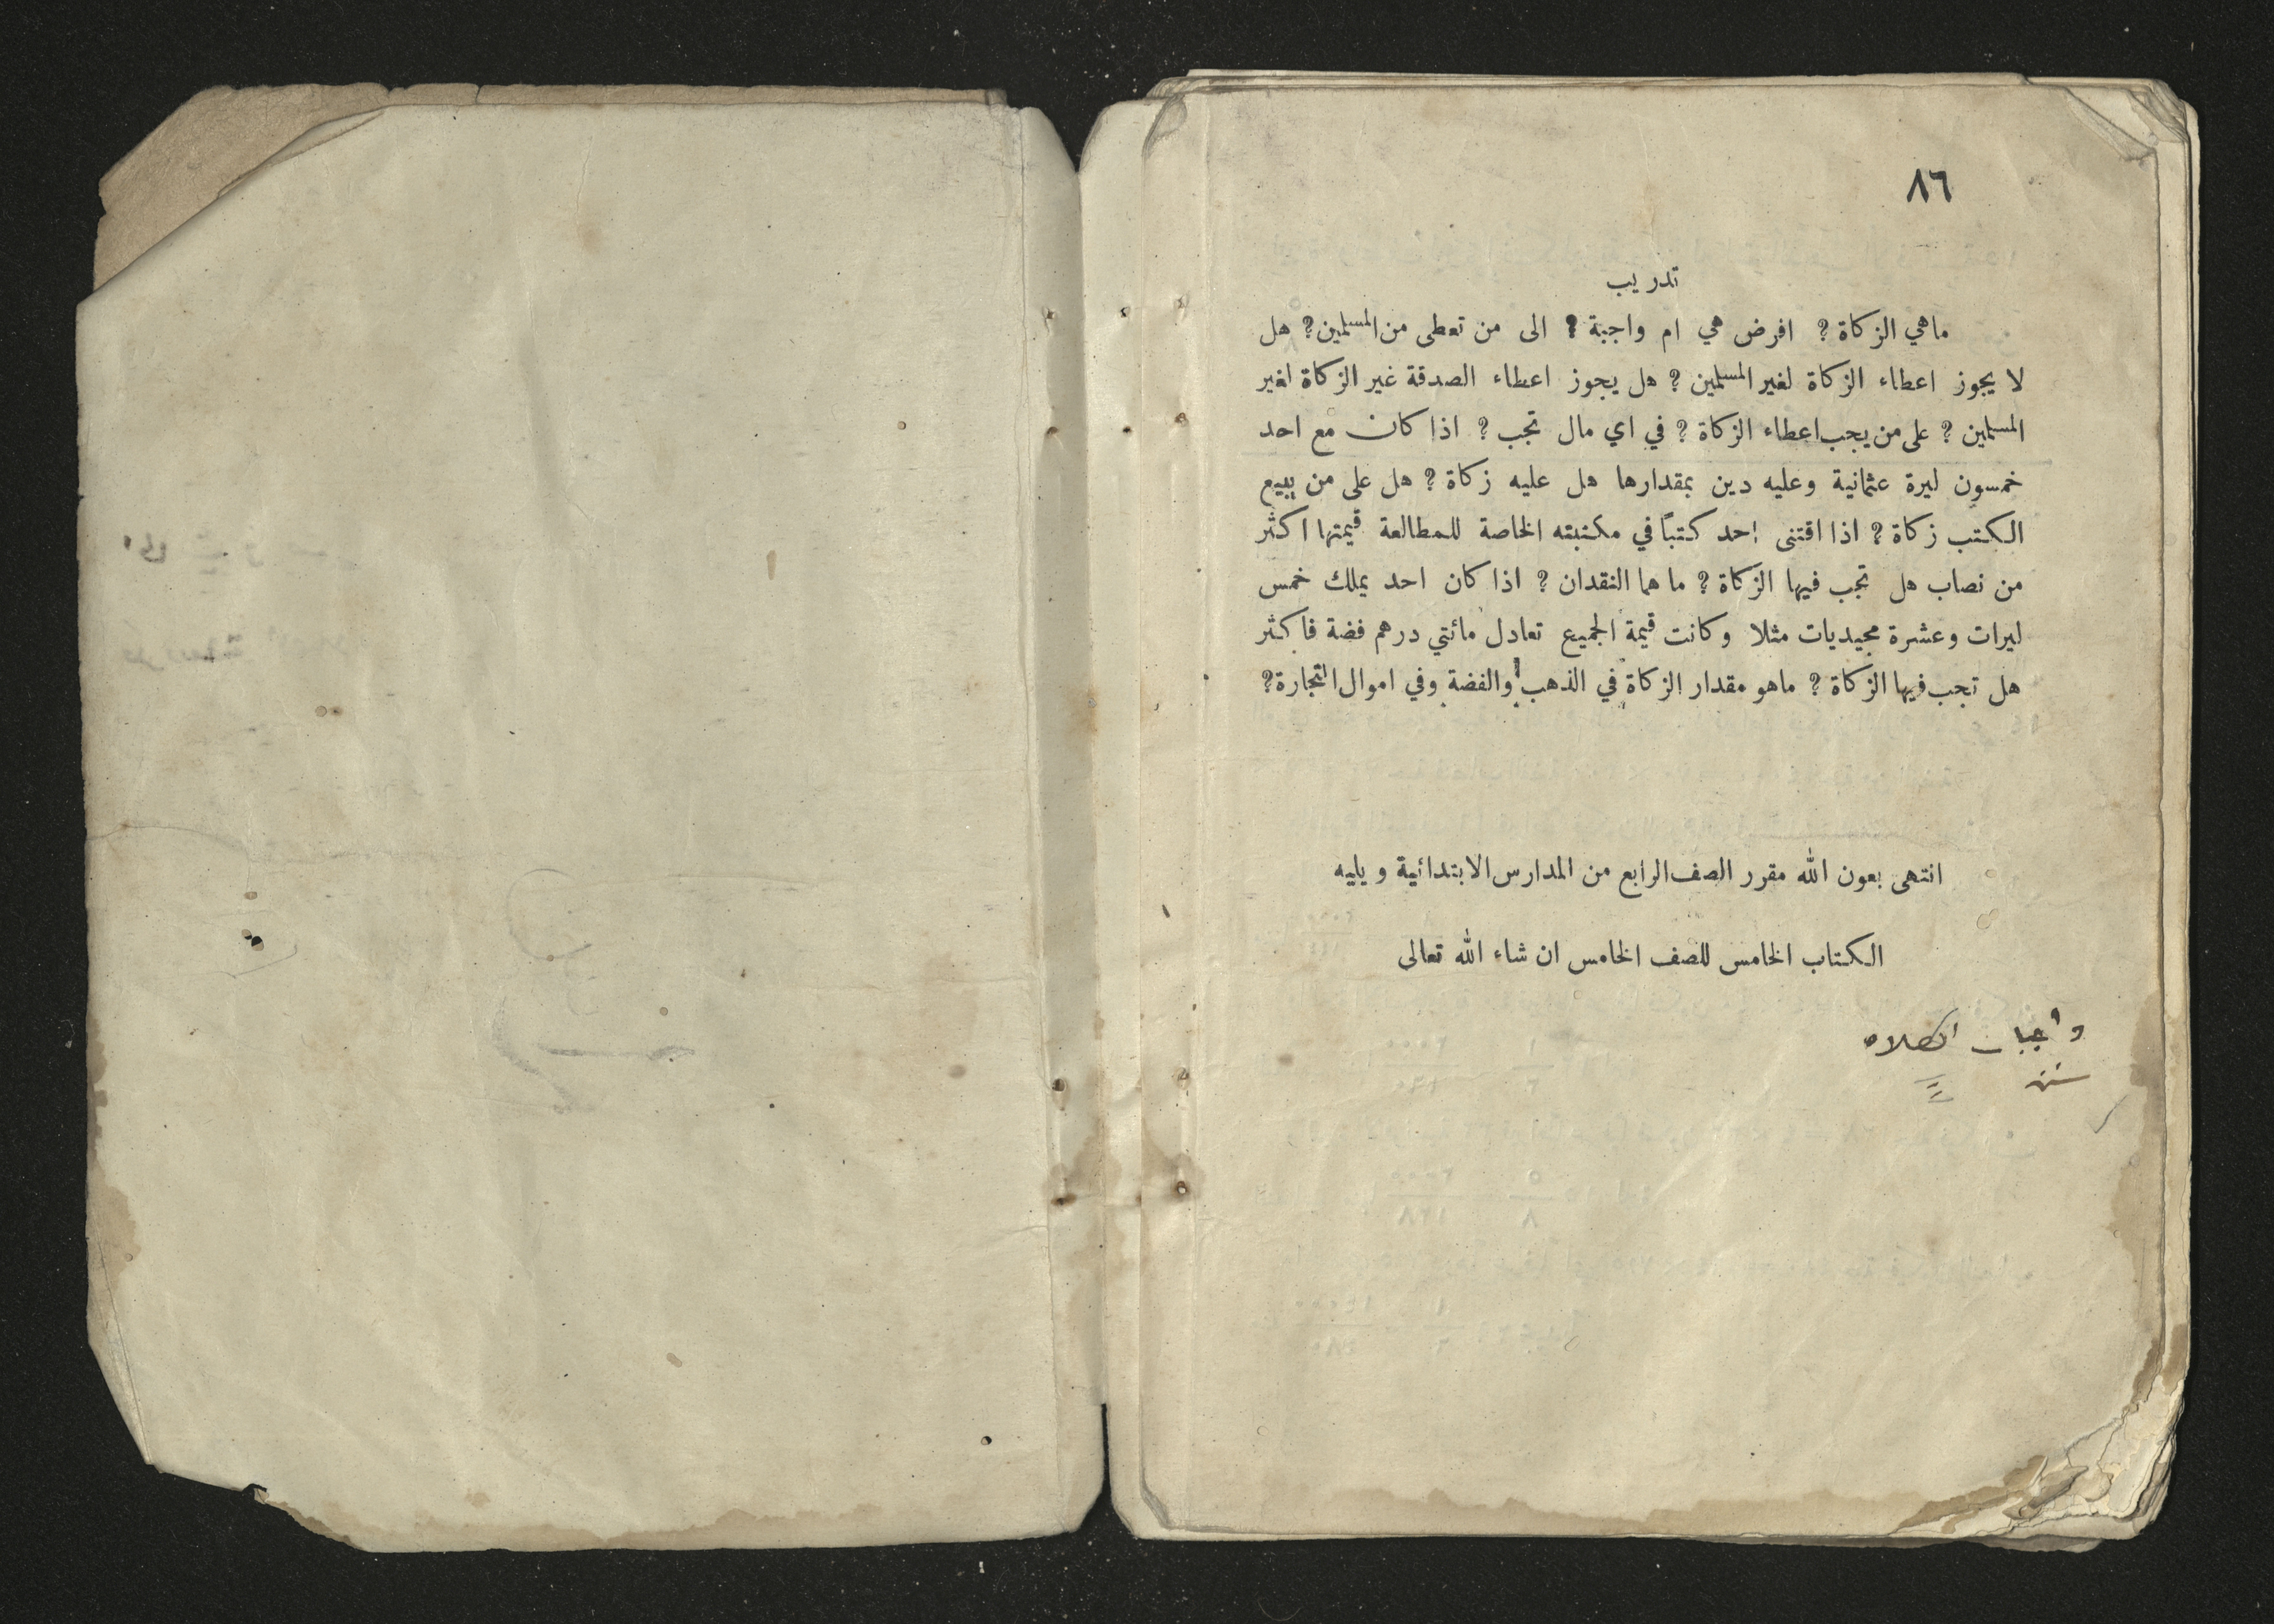 ٨٦
تدريب
ماهي الزكاة؟ افرض هي ام واجبة؟ الى من تعطى من المسلمين؟ هل
لا يجوز اعطاء الزكاة لغير المسلمين؟ هل يجوز اعطاء الصدقة غير الزكاة لغير
المسلمين؟ على من يجب اعطاء الزكاة؟ في اي مال تجب؟ اذا كان مع احد
خمسون ليرة عثمانية وعليه دين بمقدارها هل عليه زكاة؟ هل على من يبيع
الكتب زكاة؟ اذا اقتنى احد كتبًا في مكتبته الخاصة للمطالعة قيمتها اكثر
من نصاب هل تجب فيها الزكاة؟ ما هما النقدان؟ اذا كان احد يملك خمس
ليرات وعشرة مجيديات مثلا وكانت قيمة الجميع تعادل مائتي درهم فضة فاكثر
هل تجب فيها الزكاة؟ ماهو مقدار الزكاة في الذهب والفضة وفي اموال التجارة؟
انتهى بعون الله مقرر الصف الرابع من المدارس الابتدائية ويليه
الكتاب الخامس للصف الخامس ان شاء الله تعالى
واجبات الصلاه
سنن